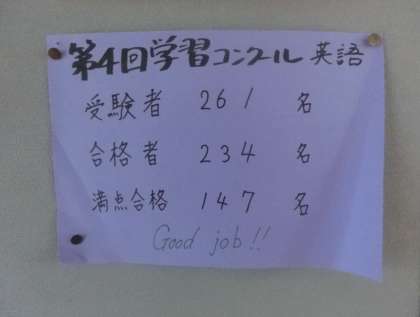 第4回学習コンクール 英語
受験者 261 名
合格者 234 名
満点合格 147 名
Good job!!